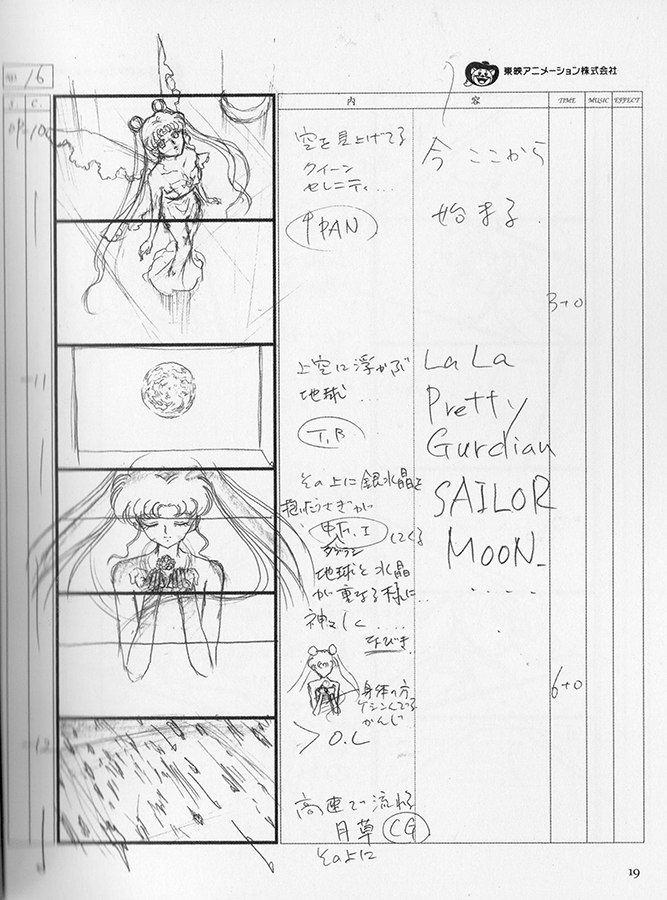 16
東映アニメーション株式会社
S. C. 内 容 TIME MUSIC EFFECT
OP-10
空を見上げてる
クイーン
セレニティ...
↑PAN
今 ここから
始まる
3+0
11
上空に浮かぶ
地球...
T.B
La La
Pretty
Gurdian
SAILOR
MOON
その上に銀水晶を
抱いたうさぎが
してくる
地球と水晶
が重なる様に...
神々しく....
なびき
身体の方
かんじ
6+0
> O.L
12
高速で流れる
月草 CG
そのように
19